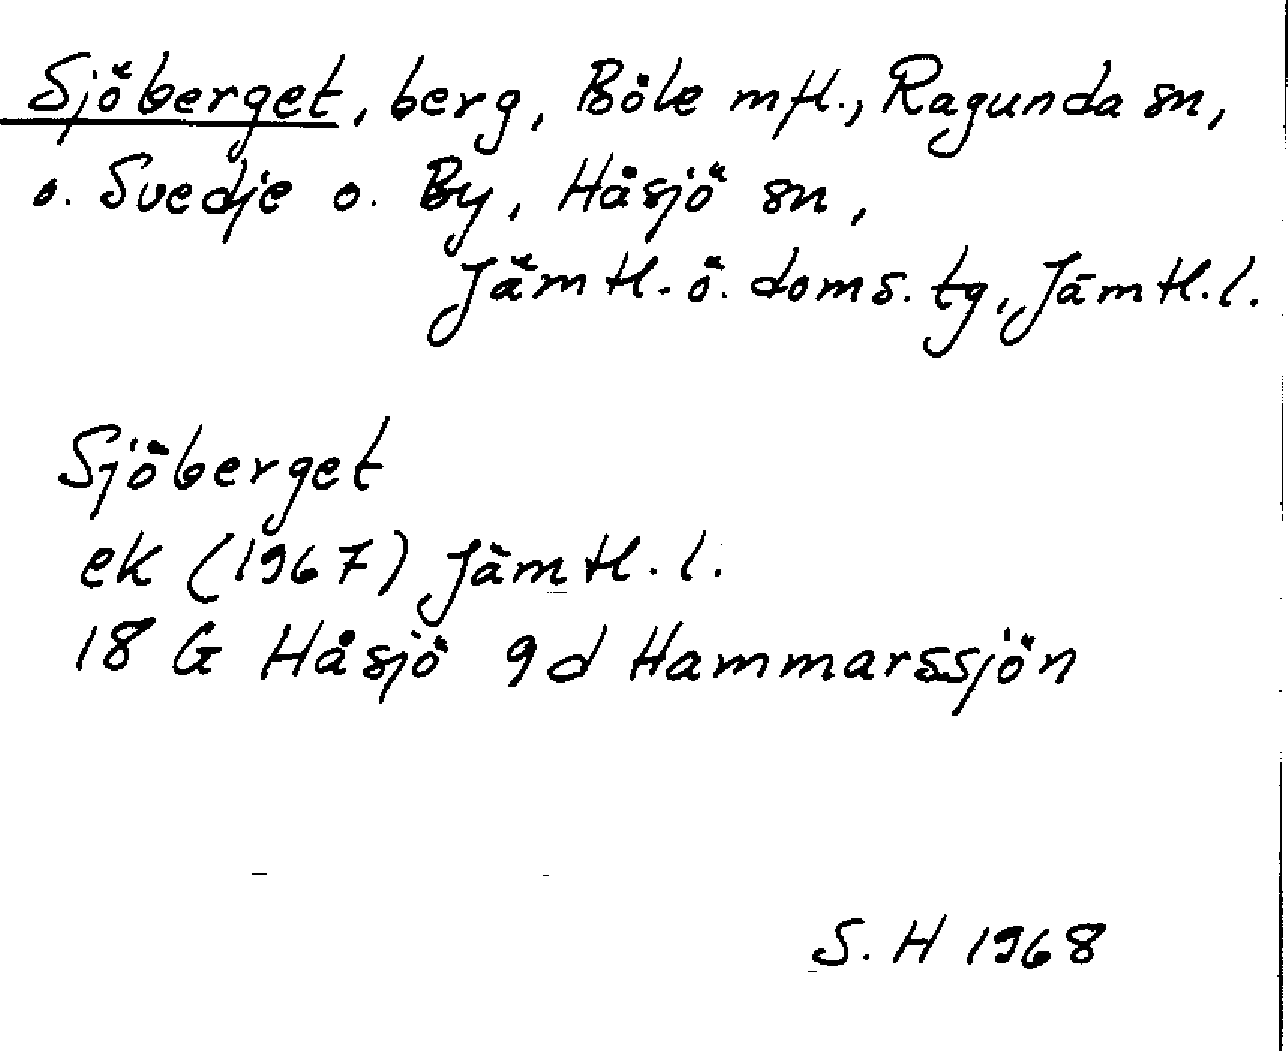 Sjöberget, berg, Böle mfl., Ragunda sn,
o. Svedje o. By, Håsjö sn,
Jämtl. ö. doms. tg, Jämtl. l.
Sjöberget
ek (1967) Jämtl. l.
18 G Håsjö 9d Hammarssjön
S. H 1968